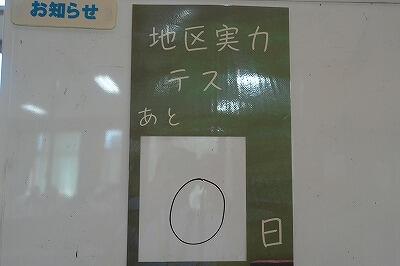 お知らせ
地区実力
テスト
あと
0
日